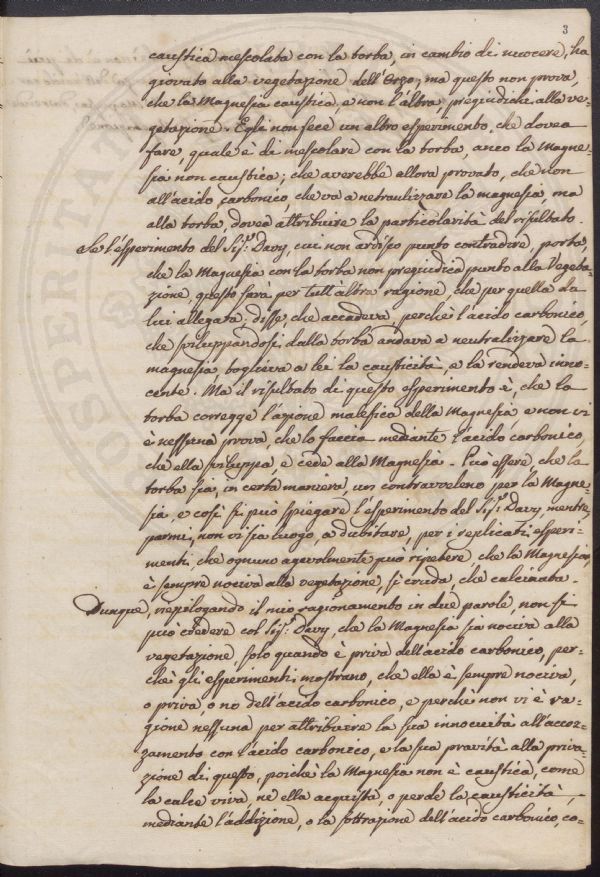 3
caustica mescolata con la torba, in cambio di nuocere, ha
giovato alla vegetazione dell'Orzo; ma questo non prova,
che la Magnesia caustica, e non l'altra pregiudichi alla ve-
getazione. Egli non fece un altro esperimento, che dovea
fare, quale è di mescolare con la torba, anco la Magne-
sia non caustica; che averebbe allora provato, che non
all'acido carbonico, che va a neutralizzare la magnesia, ma
alla torba, dovea attribuire la particolarità del risultato.
Se l'esperimento del Sig.r Davy, cui non ardisco punto contradire, porta,
che la Magnesia con la torba non pregiudica punto alla Vegeta-
zione, questo sarà per tutt'altra ragione, che per quella da
lui allegata; disse, che accadeva, perchè l'acido carbonico,
che sviluppandosi dalla torba andava a neutralizzare la
magnesia toglieva a lei la causticità, e la rendeva inno-
cente. Ma il risultato di questo esperimento è, che la
torba corregge l'azione malefica della Magnesia, e non vi
è nessuna prova, che lo faccia mediante l'acido carbonico,
che ella sviluppa, e cede alla Magnesia. Può essere, che la
torba sia, in certa maniera, un contravveleno per la Magne-
sia, e così si può spiegare l'esperimento del Sig.r Davy, mentre,
parmi, non vi sia luogo a dubitare, per i replicati esperi-
menti, che ognuno agevolmente può ripetere, che la Magnesia,
è sempre nociva alla vegetazione, sì cruda, che calcinata.
Dunque, riepilogando il mio ragionamento in due parole, non si
può credere col Sig.r Davy, che la Magnesia sia nociva alla
vegetazione, solo quando è priva dell'acido carbonico, per-
chè gli esperimenti mostrano, che ella è sempre nociva,
o priva, o nò dell'acido carbonico, e perchè non vi è ra-
gione nessuna per attribuire la sua innocuità all'accoz-
zamento con l'acido carbonico, e la sua pravità alla priva-
zione di questo, poichè la Magnesia non è caustica, come
la calce viva, nè ella acquista, o perde la causticità,
mediante l'addizione, o la sottrazione dell'acido carbonico, co-